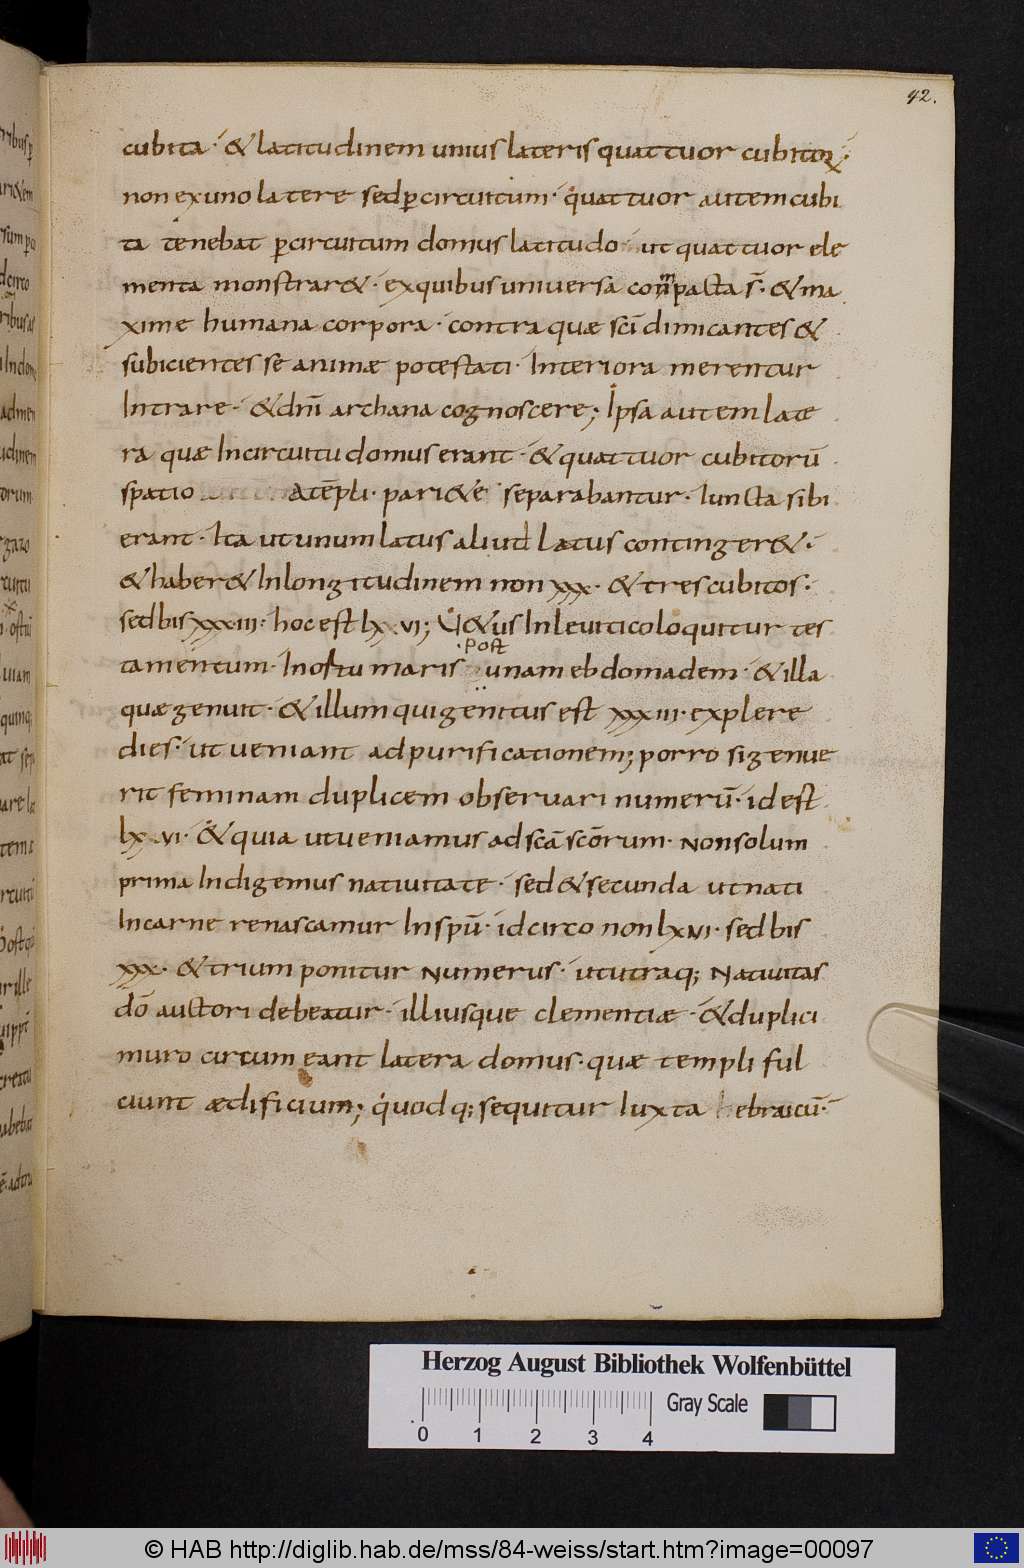 42.
cubita · & latitudinem unius lateris quattuor cubitoꝝ ·
non ex uno latere sed ꝑcircuitum · quattuor autem cubi
ta tenebat ꝑcircuitum domus latitudo ut quattuor ele
menta monstrar& · ex quibus universa compacta s̄ · & ma
xime humana corpora · contra quæ sc̄i dimicantes &
subicientes se animæ potestati · Interiora merentur
Intrare · & dn̄i archana cognoscere; Ipsa autem late
ra quæ Incircuitu domus erant · & quattuor cubitorū
spatio a tēpli · pari&e separabantur · Iuncta sibi
erant · Ita ut unum latus aliud latus continger& ·
& haber& In longitudinem non xxx · & tres cubitos ·
sed bis xxxiii · hoc est lxvi; U&us In levitico loquitur tes
tamentum · In ostu maris · post unam ebdomadem · & illa
quæ genuit · & illum qui genitus est xxxiii · explere
dies · ut veniant ad purificationem; porro si genue
rit feminam duplicem observari numerū · id est
lxvi · & quia ut veniamus ad sc̄a sc̄orum · Non solum
prima Indigemus nativitate · sed & secunda ut nati
In carne renascamur In spū · idcirco non lxvi · sed bis
xxx · & trium ponitur Numerus · ut utraq; Nativitas
dō auctori debeatur · illiusque clementiæ · & duplici
muro circumeant latera domus · quæ templi ful
ciunt ædificium; quodq; sequitur Iuxta hebraicū ·
Herzog August Bibliothek Wolfenbüttel
0 1 2 3 4
Gray Scale
© HAB http://diglib.hab.de/mss/84-weiss/start.htm?image=00097